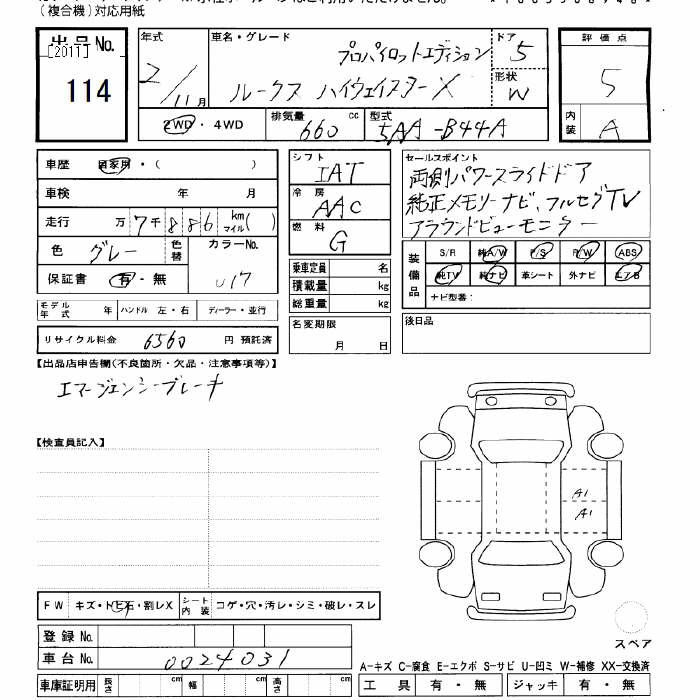 (複合機)対応用紙
出品No.
[2011]
114
年式 2/11月
車名・グレード プロパイロットエディション
ルークス ハイウェイスターX
ドア 5
形状 W
2WD・4WD
排気量 660 cc
型式 5AA-B44A
評価点 5
内装 A
車歴 自家用・( )
車検 年 月
走行 万7千886 km マイル( )
色 グレー 色替 カラーNo.
保証書 有・無 017
モデル年式 年 ハンドル 左・右 ディーラー・並行
リサイクル料金 6560 円 預託済
シフト IAT
冷房 AAC
燃料 G
乗車定員 名
積載量 kg
総重量 kg
名変期限
月 日
セールスポイント
両側パワースライドドア
純正メモリーナビ、フルセグTV
アラウンドビューモニター
装備品
S/R 純A/W P/S P/W ABS
純TV 純ナビ 革シート 外ナビ エアB
ナビ型番:
後日品
【出品店申告欄(不良箇所・欠品・注意事項等)】
エマージェンシーブレーキ
【検査員記入】
A1
A1
FW キズ・トビ石・割レX シート内装 コゲ・穴・汚レ・シミ・破レ・スレ
登録No.
車台No. 0024031
車庫証明用 長さ cm 幅 cm 高さ cm
スペア
A-キズ C-腐食 E-エクボ S-サビ U-凹ミ W-補修 XX-交換済
工具 有・無 ジャッキ 有・無